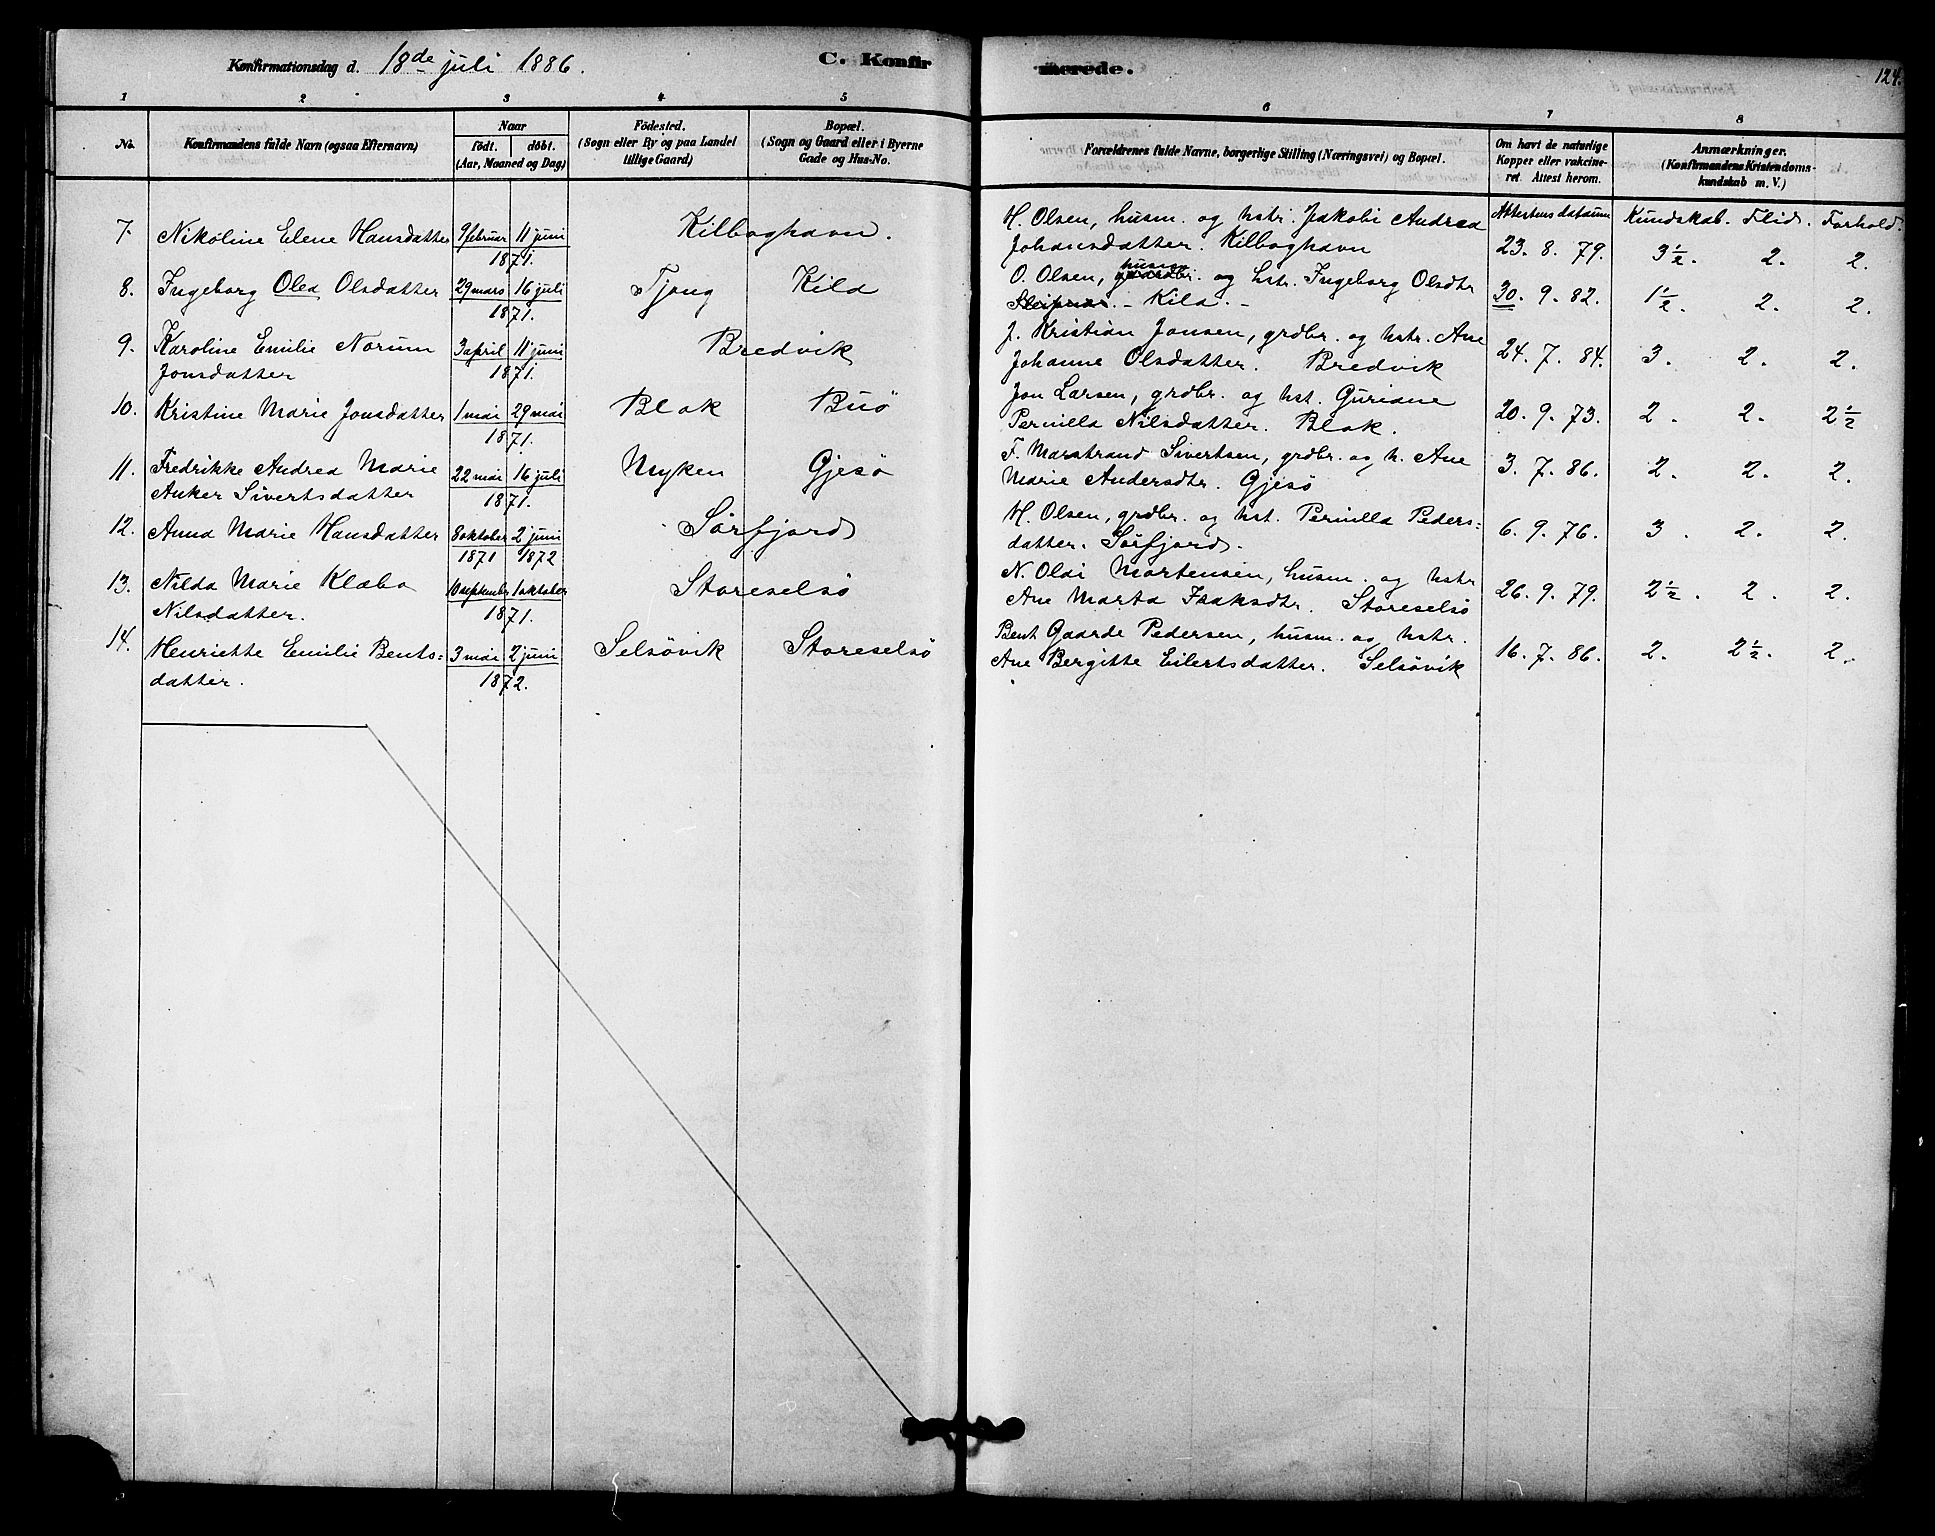 Konfirmationsdag d. 18de juli 1886.
C. Konfirmerede.
124.
1 2 3 4 5 6 7 8
No.
Konfirmandens fulde Navn (ogsaa Efternavn)
Naar
födt. döbt.
(Aar, Maaned og Dag)
Födested.
(Sogn eller By og paa Landet
tillige Gaard)
Bopæl.
(Sogn og Gaard eller i Byerne
Gade og Hus-No.
Forældrenes fulde Navne, borgerlige Stilling (Næringsvei) og Bopæl.
Om havt de naturlige
Kopper eller vakcine-
ret. Attest herom.
Anmærkninger.
(Konfirmandens Kristendoms-
kundskab m. V.)
Attestens datum Kundskab. Flid. Forhold.
7. Nikoline Elene Hansdatter 9 februar 11 juni Kilboghavn. H. Olsen, husm. og hstr. Jakobi Andrea
1871. Johansdatter. Kilboghavn 23. 8. 79. 3½. 2. 2.
8. Ingeborg Olea Olsdatter 29 mars 16 juli Tjong Kila O. Olsen, husm. gaardbr. og hstr. Ingeborg Olsdtr
1871. Sleipnes. - Kila. - 30. 9. 82. 1½. 2. 2.
9. Karoline Emilie Norum 3 april 11 juni Bredvik J. Kristian Jonsen, grdbr. og hstr. Ane
Jonsdatter 1871. Johanne Olsdatter. Bredvik 24. 7. 84. 3. 2. 2.
10. Kristine Marie Jonsdatter 1 mai 29 mai Blok Buö Jon Larsen, grdbr. og hst. Guriane
1871. Pernilla Nilsdatter. Blok. 20. 9. 73. 2. 2. 2½
11. Fredrikke Andrea Marie 22 mai 16 juli Myken Gjesö F. Marstrand Sivertsen, grdbr. og h. Ane
Anker Sivertsdatter 1871. Marie Andersdtr. Gjesö 3. 7. 86. 2. 2. 2.
12. Anna Marie Hansdatter 8 oktober 2 juni Sörfjord H. Olsen, grdbr. og hst. Pernilla Peders-
1871 1872 datter. Sörfjord. 6. 9. 76. 3. 2. 2.
13. Nilda Marie Klæbo 10 september 1 oktober Storeselsö N. Oldi Mortensen, husm. og hstr
Nilsdatter. 1871. Ane Marta Isaksdtr. Storeselsö 26. 9. 79. 2½. 2. 2.
14. Henriette Emilie Bents- 3 mai 2 juni Selsövik Storeselsö Bent Gaarde Pedersen, husm. og hstr.
datter. 1872. Ane Bergitte Eilertsdatter. Selsövik 16. 7. 86. 2. 2½. 2.